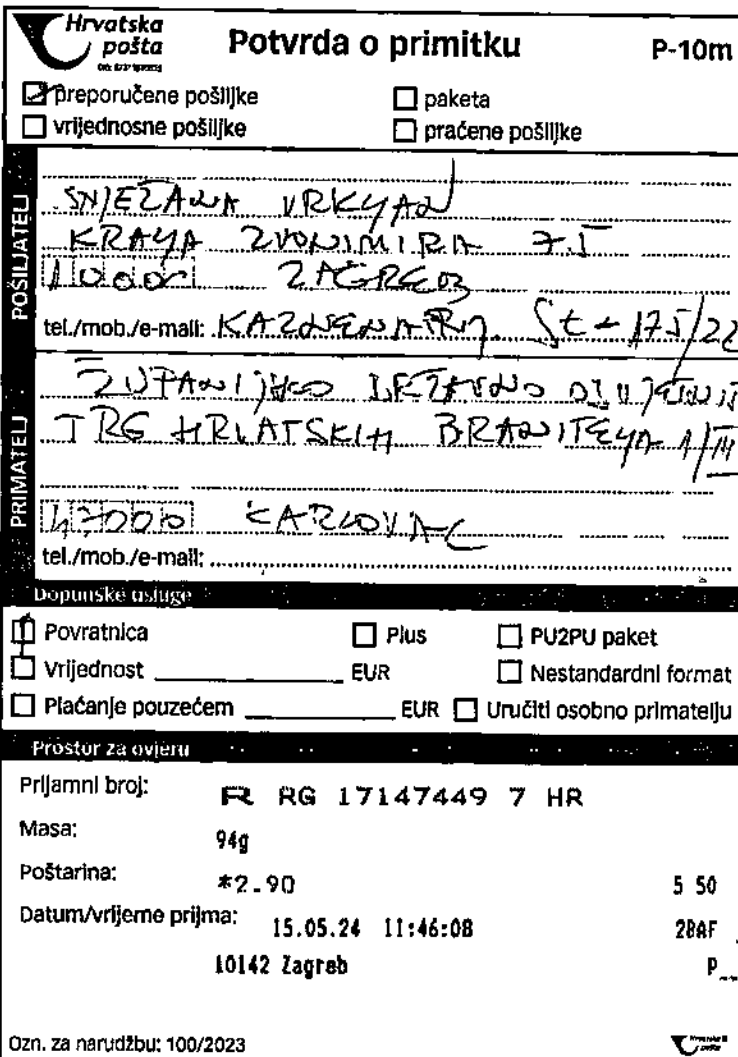 Hrvatska pošta
Potvrda o primitku
P-10m
preporučene pošiljke
paketa
vrijednosne pošiljke
praćene pošiljke
POŠILJATELJ
SNJEŽANA VRKLJAN
KRALJA ZVONIMIRA 75
10000 ZAGREB
tel./mob./e-mail: St-175/22
PRIMATELJ
ŽUPANIJSKO DRŽAVNO
TRG HRVATSKIH BRANITELJA 1/III
47000 KARLOVAC
tel./mob./e-mail:
Dopunske usluge
Povratnica
Plus
PU2PU paket
Vrijednost EUR
Nestandardni format
Plaćanje pouzećem EUR
Uručiti osobno primatelju
Prostor za ovjeru
Prijamni broj: R RG 17147449 7 HR
Masa: 94g
Poštarina: *2.90 5 50
Datum/vrijeme prijma: 15.05.24 11:46:08 2BAF
10142 Zagreb P
Ozn. za narudžbu: 100/2023